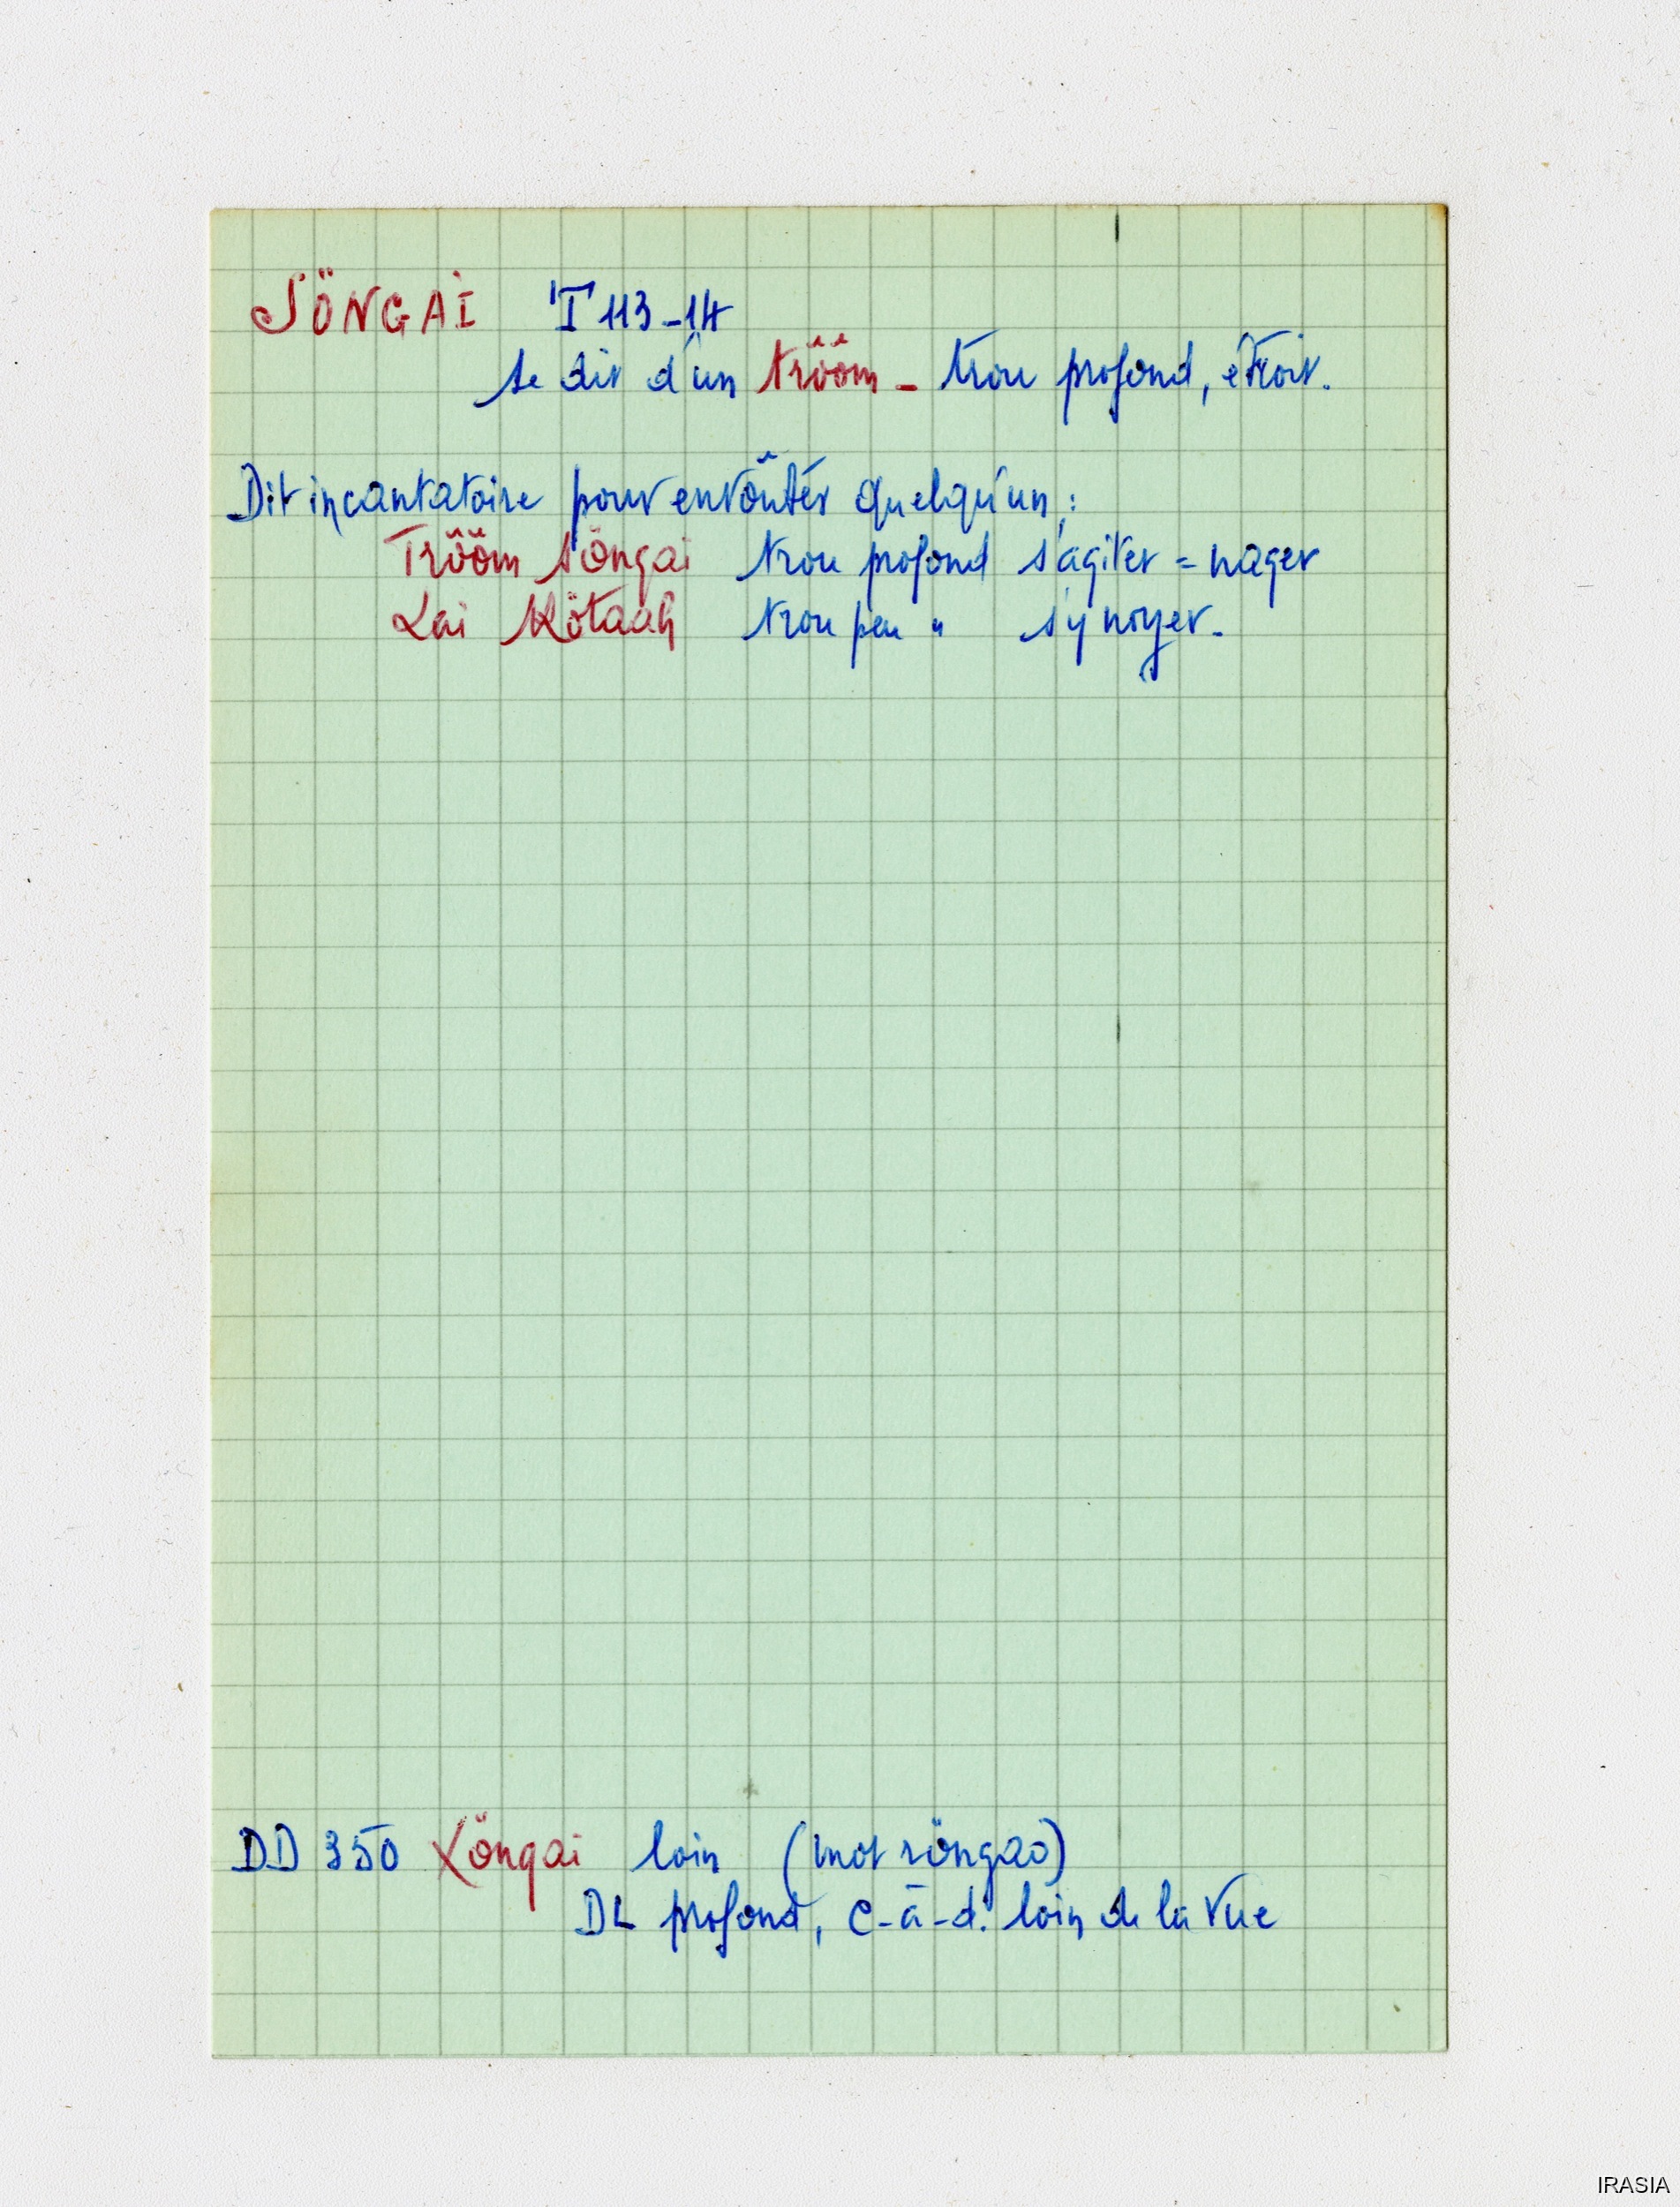 SÖNGAI T 113-14
se dit d'un trôôm - trou profond, étroit.
Dit incantatoire pour envoûter quelqu'un :
Trôôm söngai trou profond s'agiter = nager
Lai Kötaah trou peu " s'y noyer.
DD 350 Xöngai loin (mot röngao)
DL profond, c-à-d. loin de la vue
IRASIA